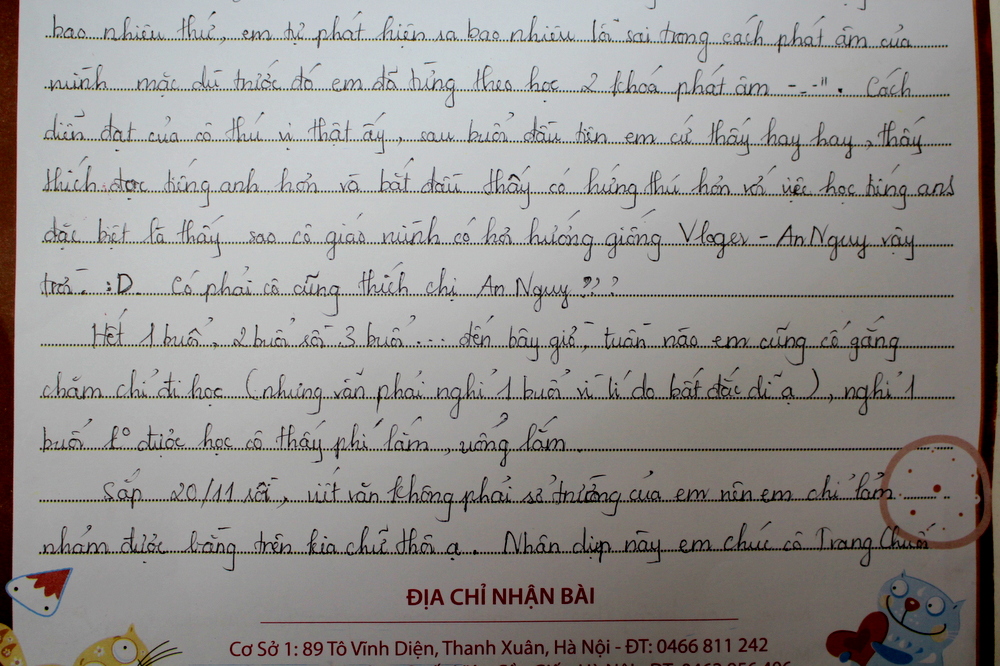 bao nhiêu thứ, em tự phát hiện ra bao nhiêu lỗi sai trong cách phát âm của
mình mặc dù trước đó em đã từng theo học 2 khoá phát âm ---". Cách
diễn đạt của cô thú vị thật ấy, sau buổi đầu tiên em cứ thấy hay hay, thấy
thích được tiếng anh hơn và bắt đầu thấy có hứng thú hơn với việc học tiếng anh
đặc biệt là thấy sao cô giáo mình có hơi hướng giống Vloger - An Nguy vậy
trời. :D. Có phải cô cũng thích chị An Nguy ???
Hết 1 buổi, 2 buổi rồi 3 buổi ... đến bây giờ, tuần nào em cũng cố gắng
chăm chỉ đi học (nhưng vẫn phải nghỉ 1 buổi vì lí do bất đắc dĩ ạ), nghỉ 1
buổi k° được học cô thấy phí lắm, uổng lắm
Sắp 20/11 rồi, viết văn không phải sở trường của em nên em chỉ lảm
nhảm được bằng trên kia chữ thôi ạ. Nhân dịp này em chúc cô Trang Chuối
ĐỊA CHỈ NHẬN BÀI
Cơ Sở 1: 89 Tô Vĩnh Diện, Thanh Xuân, Hà Nội - ĐT: 0466 811 242